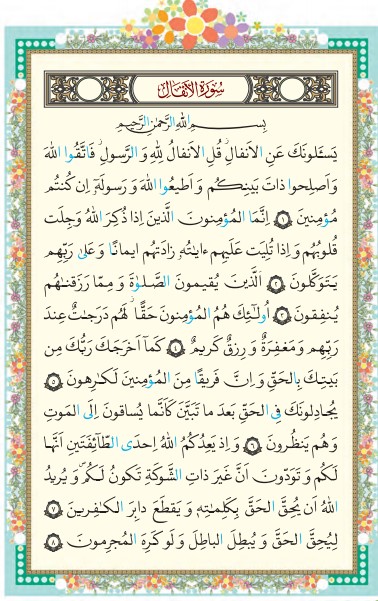 سُورَةُ الأَنفَال
بِسمِ اللهِ الرَّحمٰنِ الرَّحيمِ
يَسـَٔلونَكَ عَنِ الاَنفالِ ۖ قُلِ الاَنفالُ لِلّٰهِ وَ الرَّسولِ ۖ فَاتَّقُوا اللهَ
وَ اَصلِحوا ذاتَ بَينِكُم ۖ وَ اَطيعُوا اللهَ وَ رَسولَهٗۤ اِن كُنتُم
مُؤمِنينَ ﴿١﴾ اِنَّمَا المُؤمِنونَ الَّذينَ اِذا ذُكِرَ اللهُ وَجِلَت
قُلوبُهُم وَ اِذا تُلِيَت عَلَيهِم ءايٰتُهٗ زادَتهُم ايمانًا وَ عَلىٰ رَبِّهِم
يَتَوَكَّلونَ ﴿٢﴾ اَلَّذينَ يُقيمونَ الصَّلوٰةَ وَ مِمّا رَزَقنٰهُم
يُنفِقونَ ﴿٣﴾ اُولٰۤئِكَ هُمُ المُؤمِنونَ حَقًّا ۚ لَهُم دَرَجٰتٌ عِندَ
رَبِّهِم وَ مَغفِرَةٌ وَ رِزقٌ كَريمٌ ﴿٤﴾ كَماۤ اَخرَجَكَ رَبُّكَ مِن
بَيتِكَ بِالحَقِّ وَ اِنَّ فَريقًا مِنَ المُؤمِنينَ لَكٰرِهونَ ﴿٥﴾
يُجادِلونَكَ فِى الحَقِّ بَعدَ ما تَبَيَّنَ كَأَنَّما يُساقونَ اِلَى المَوتِ
وَ هُم يَنظُرونَ ﴿٦﴾ وَ اِذ يَعِدُكُمُ اللهُ اِحدَى الطّاۤئِفَتَينِ اَنَّها
لَكُم وَ تَوَدّونَ اَنَّ غَيرَ ذاتِ الشَّوكَةِ تَكونُ لَكُم وَ يُريدُ
اللهُ اَن يُحِقَّ الحَقَّ بِكَلِمٰتِهٖ وَ يَقطَعَ دابِرَ الكٰفِرينَ ﴿٧﴾
لِيُحِقَّ الحَقَّ وَ يُبطِلَ الباطِلَ وَ لَو كَرِهَ المُجرِمونَ ﴿٨﴾